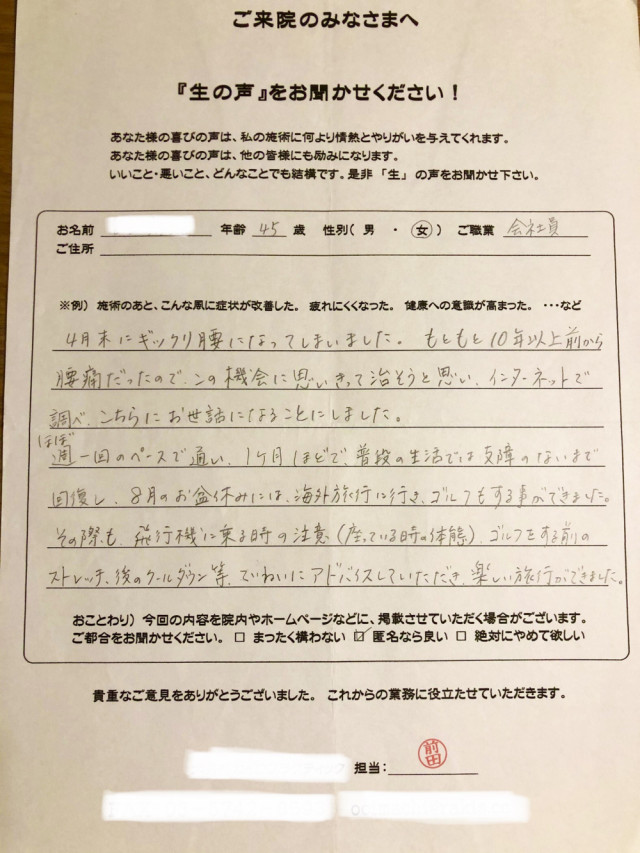 ご来院のみなさまへ
『生の声』をお聞かせください！
あなた様の喜びの声は、私の施術に何より情熱とやりがいを与えてくれます。
あなた様の喜びの声は、他の皆様にも励みになります。
いいこと・悪いこと、どんなことでも結構です。是非「生」の声をお聞かせ下さい。
お名前 年齢 45 歳 性別( 男 ・ 女 ) ご職業 会社員
ご住所
※例）施術のあと、こんな風に症状が改善した。疲れにくくなった。健康への意識が高まった。・・・など
4月末にギックリ腰になってしまいました。もともと10年以上前から
腰痛だったので、この機会に思いきって治そうと思い、インターネットで
調べ、こちらにお世話になることにしました。
ほぼ
週一回のペースで通い、1ヶ月ほどで、普段の生活では支障のないまで
回復し、8月のお盆休みには、海外旅行に行き、ゴルフもする事ができました。
その際も、飛行機に乗る時の注意（座っている時の体態）、ゴルフをする前の
ストレッチ、後のクールダウン等、ていねいにアドバイスしていただき、楽しい旅行ができました。
おことわり）今回の内容を院内やホームページなどに、掲載させていただく場合がございます。
ご都合をお聞かせください。□ まったく構わない ☑ 匿名なら良い □ 絶対にやめて欲しい
貴重なご意見をありがとうございました。これからの業務に役立たせていただきます。
担当： 前田